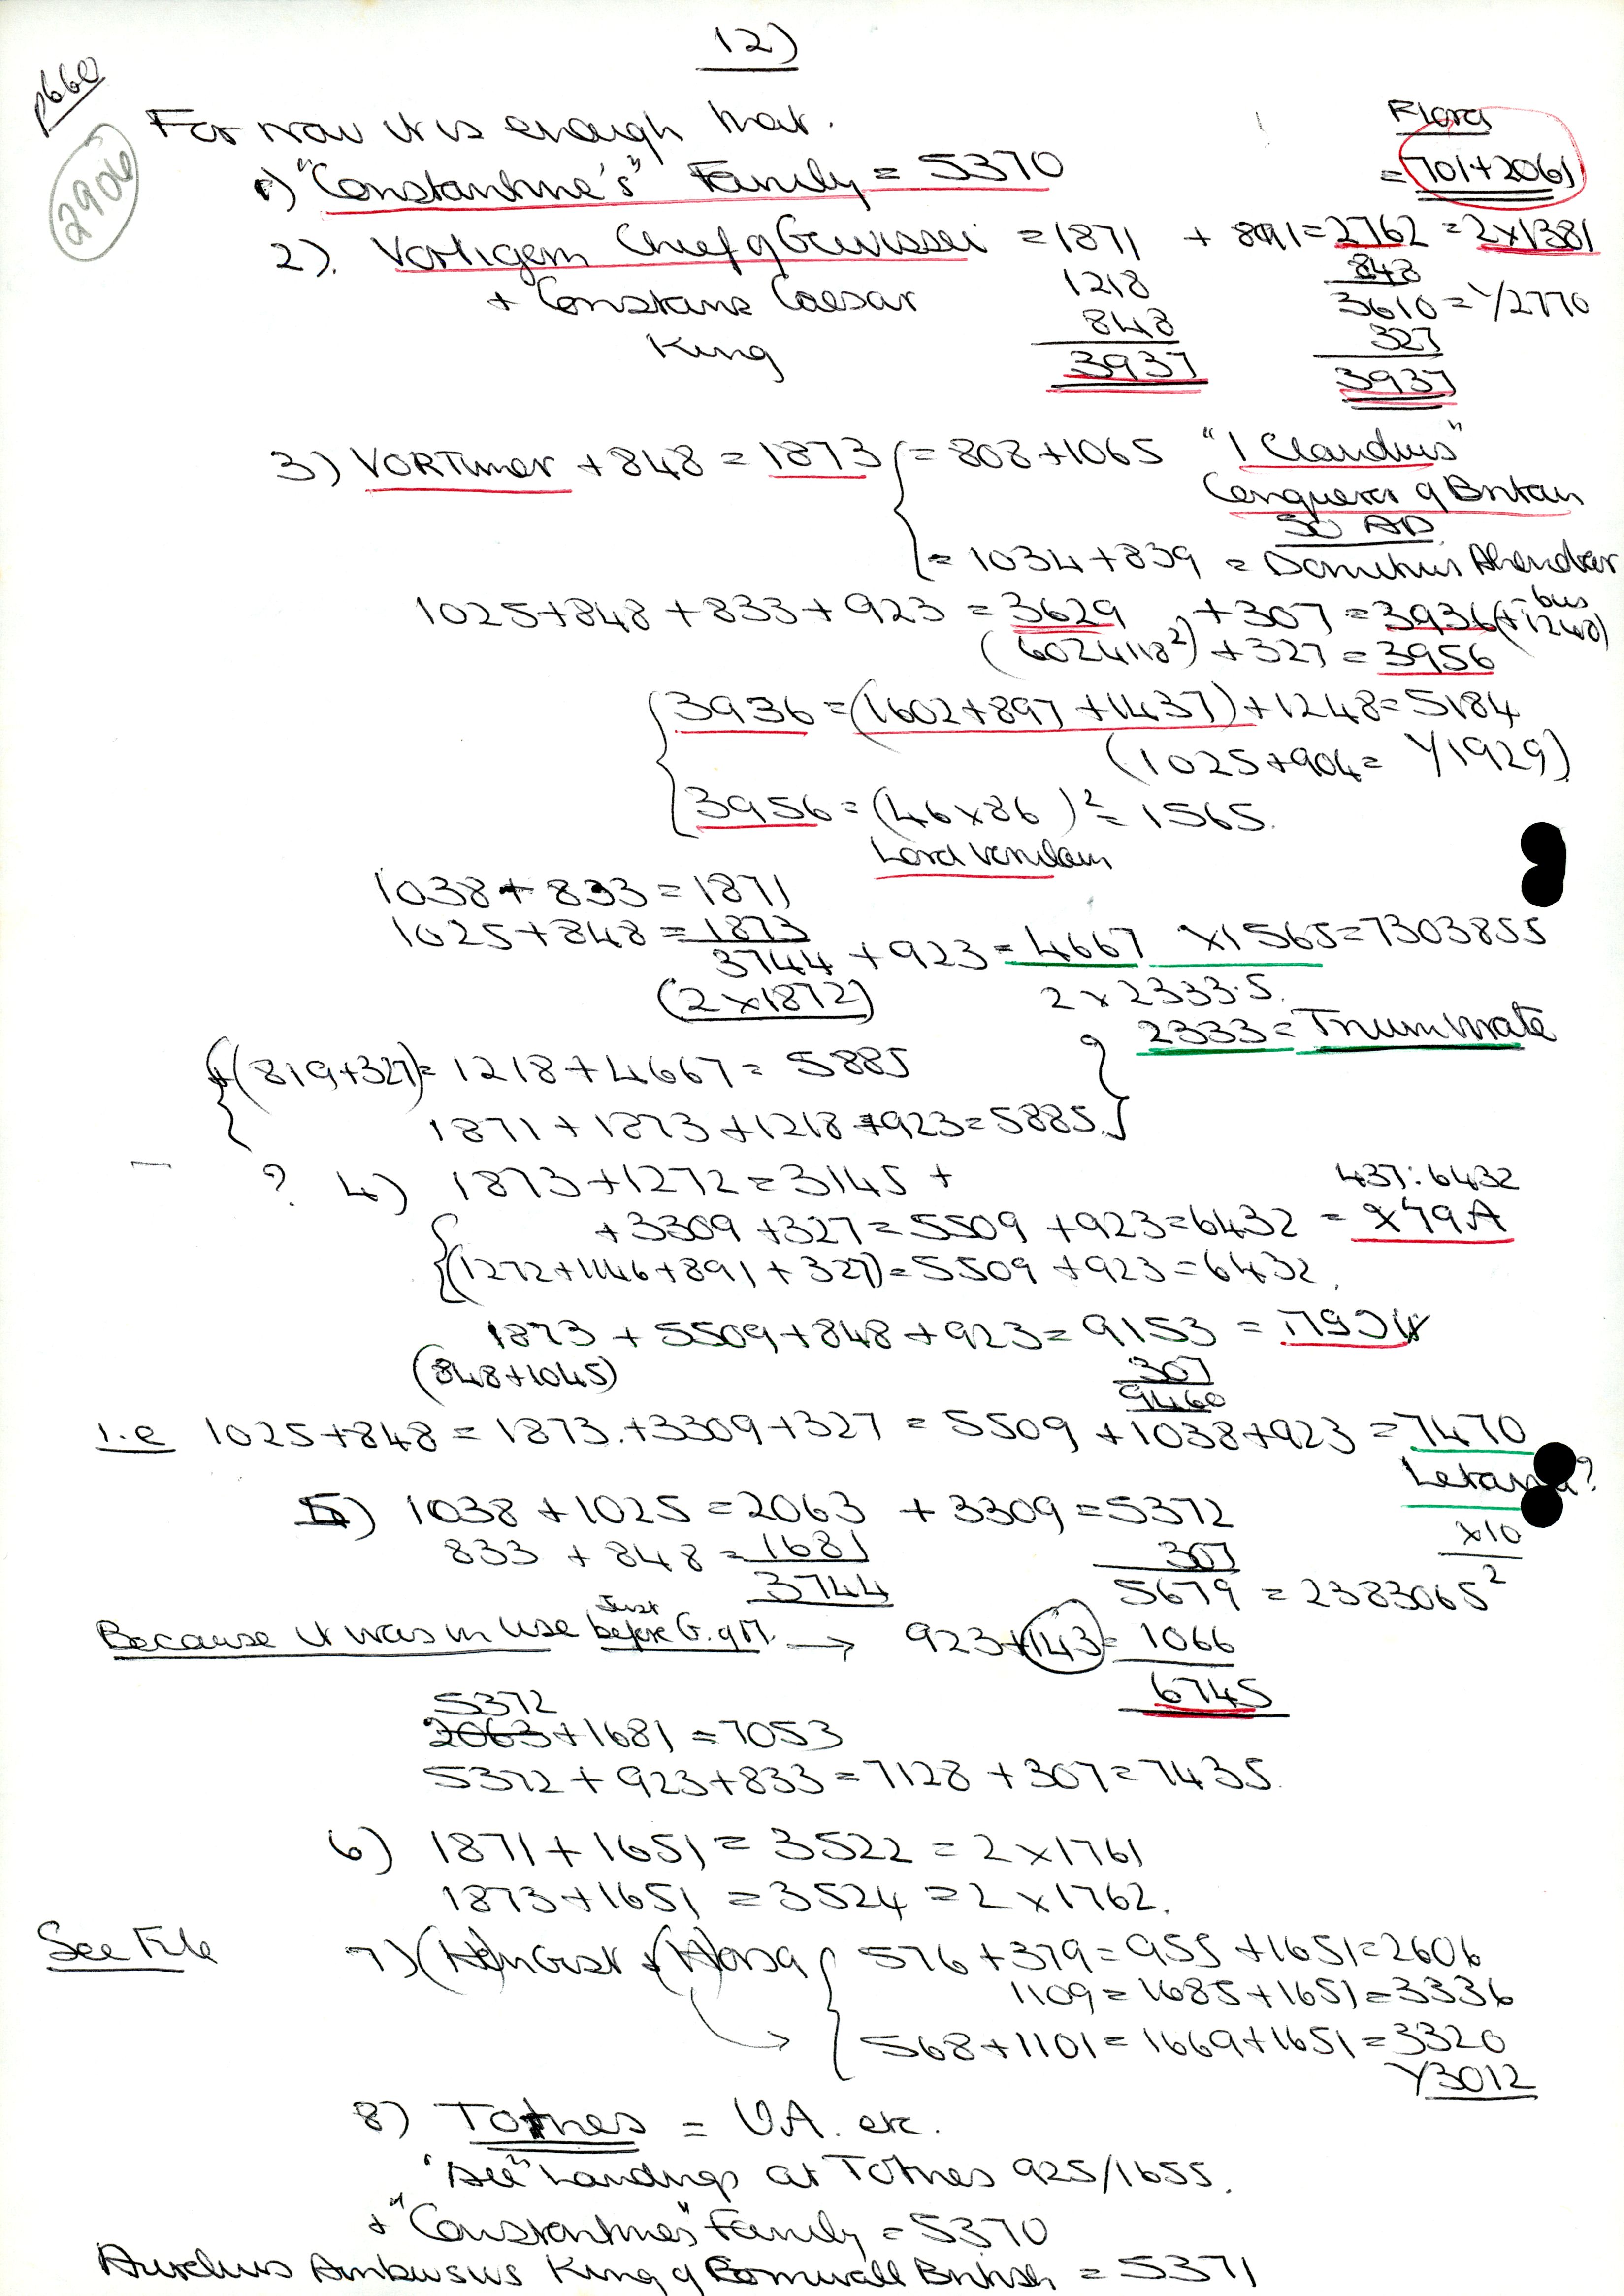 12)
p660
2906
For now it is enough that.
Flora
1) "Constantine's" Family = 5370
= 701+2061
2). Vortigern Chief of Gewissei = 1871 + 891 = 2762 = 2x1381
+ Constans Caesar 1218 848
3610 = Y2770
King 848 327
3937 3937
3) VORTimer + 848 = 1873 { = 808+1065 "I Claudius"
Conqueror of Britain
50 AD
= 1034+839 = Domitius Ahenobar
-bus
1025+848+833+923 = 3629 + 307 = 3936 (+1248)
(6024118²) + 327 = 3956
{ 3936 = (1602+897+1437)+1248=5184
(1025+904= Y1929)
{ 3956 = (46x86)² = 1565.
Lord Verulam
1038+833=1871
1025+848=1873
3744 + 923 = 4667 x1565=7303855
(2x1872) 2x2333.5
2333 = Triumvirate
{ (819+327)= 1218+4667= 5885 }
1871+1873+1218+923=5885.
? 4) 1873+1272=3145 +
437:6432
+3309+327=5509 +923=6432 = x79A
{(1272+1146+891+327)=5509+923=6432.
1873+5509+848+923=9153 =
(848+1045) 307
9460
i.e 1025+848=1873.+3309+327=5509+1038+923=7470
?
5) 1038+1025=2063 + 3309=5372
x10
833+848=1681 307
3744 5679 = 2383065²
Because it was in use Just before G. of M. → 923+143= 1066
6745
5372
2063+1681=7053
5372+923+833=7128+307=7435.
6) 1871+1651=3522=2x1761
1873+1651=3524=2x1762.
See File 7) (H)engist + (H)orsa { 576+379=955+1651=2606
1109=1685+1651=3336
→ 568+1101=1669+1651=3320
Y3012
8) Totnes = V.A. etc.
"See" Landings at Totnes 925/1655.
+ "Constantines" Family = 5370
Aurelius Ambusus King of Cornwall British = 5371